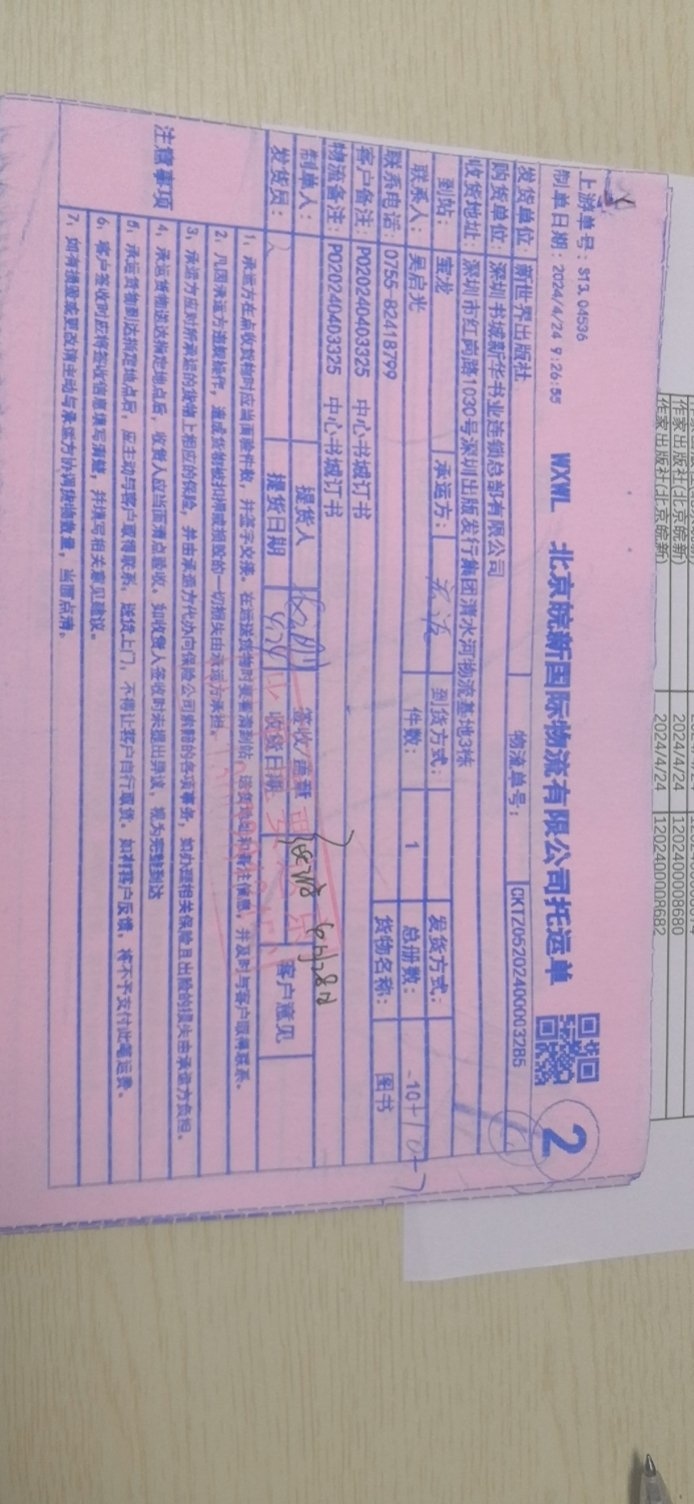 上游单号：ST3.04536
制单日期：2024/4/24 9:26:55
WXWL 北京皖新国际物流有限公司托运单
2
发货单位：新世界出版社 物流单号：CKTZ05202400003285
购货单位：深圳书城新华书业连锁总部有限公司
收货地址：深圳市红岗路1030号深圳出版发行集团清水河物流基地3栋
到站：宝龙 承运方： 到货方式： 发货方式：
联系人：吴启光 件数：1 总册数：
联系电话：0755-82418799 货物名称：图书
客户备注：PO20240403325 中心书城订书
物流备注：PO20240403325 中心书城订书
制单人： 提货人 签收/盖章 客户意见
发货员： 提货日期 收货日期
注意事项
1、承运方在点收货物时应当面验件数，并签字交接。在运送货物时要看清到站、送货地址和备注信息，并及时与客户取得联系。
2、凡因承运方违规操作，造成货物被扣押或损毁的一切损失由承运方承担。
3、承运方应对所承运的货物上相应的保险，并由承运方代办向保险公司索赔的各项事务，如办理相关保险且出险的损失由承运方负担。
4、承运货物送达指定地点后，收货人应当面清点验收。如收货人签收时未提出异议，视为完整到达
5、承运货物到达指定地点后，应主动与客户取得联系，送货上门，不得让客户自行取货。如有客户反馈，将不予支付此笔运费。
6、客户签收时应将签收信息填写清楚，并填写相关意见建议。
7、如有损毁或更改请主动与承运方协调货物数量，当面点清。
作家出版社(北京皖新) 2024/4/24 1202400008680
作家出版社(北京皖新) 2024/4/24 1202400008682